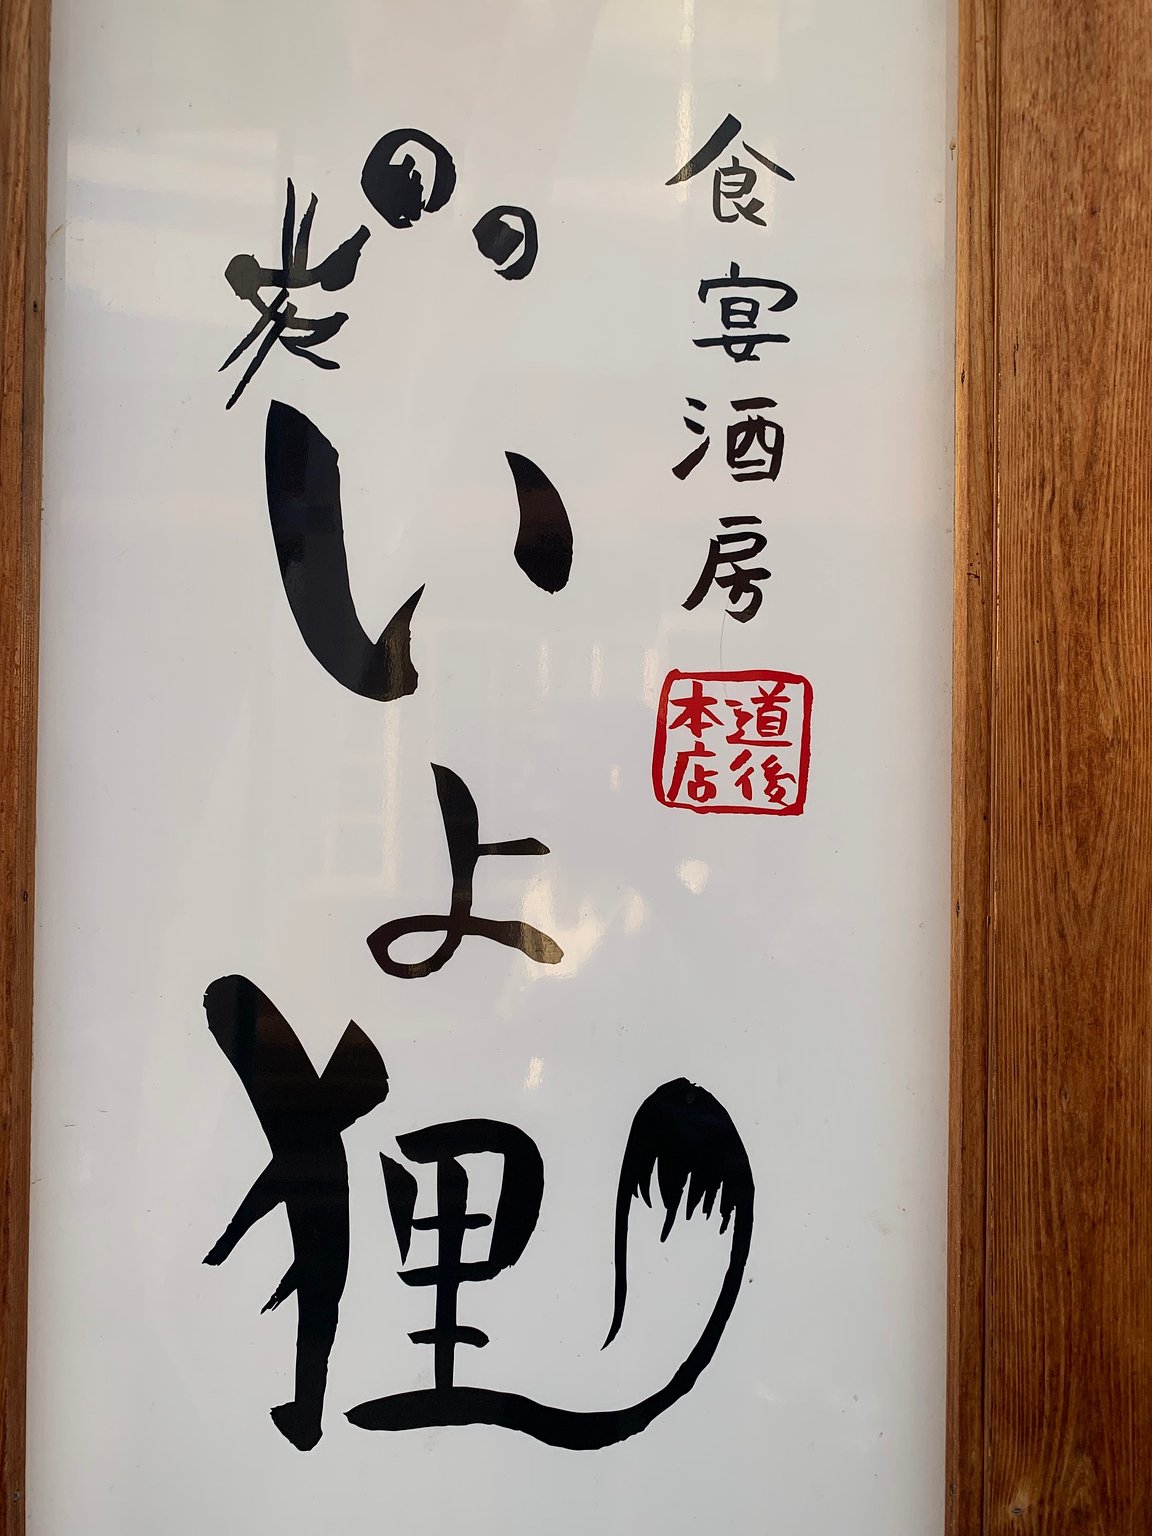 食宴酒房
道後
本店
炭
いよ狸